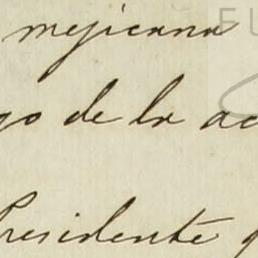 mejicana
go de la ac
Presidente q